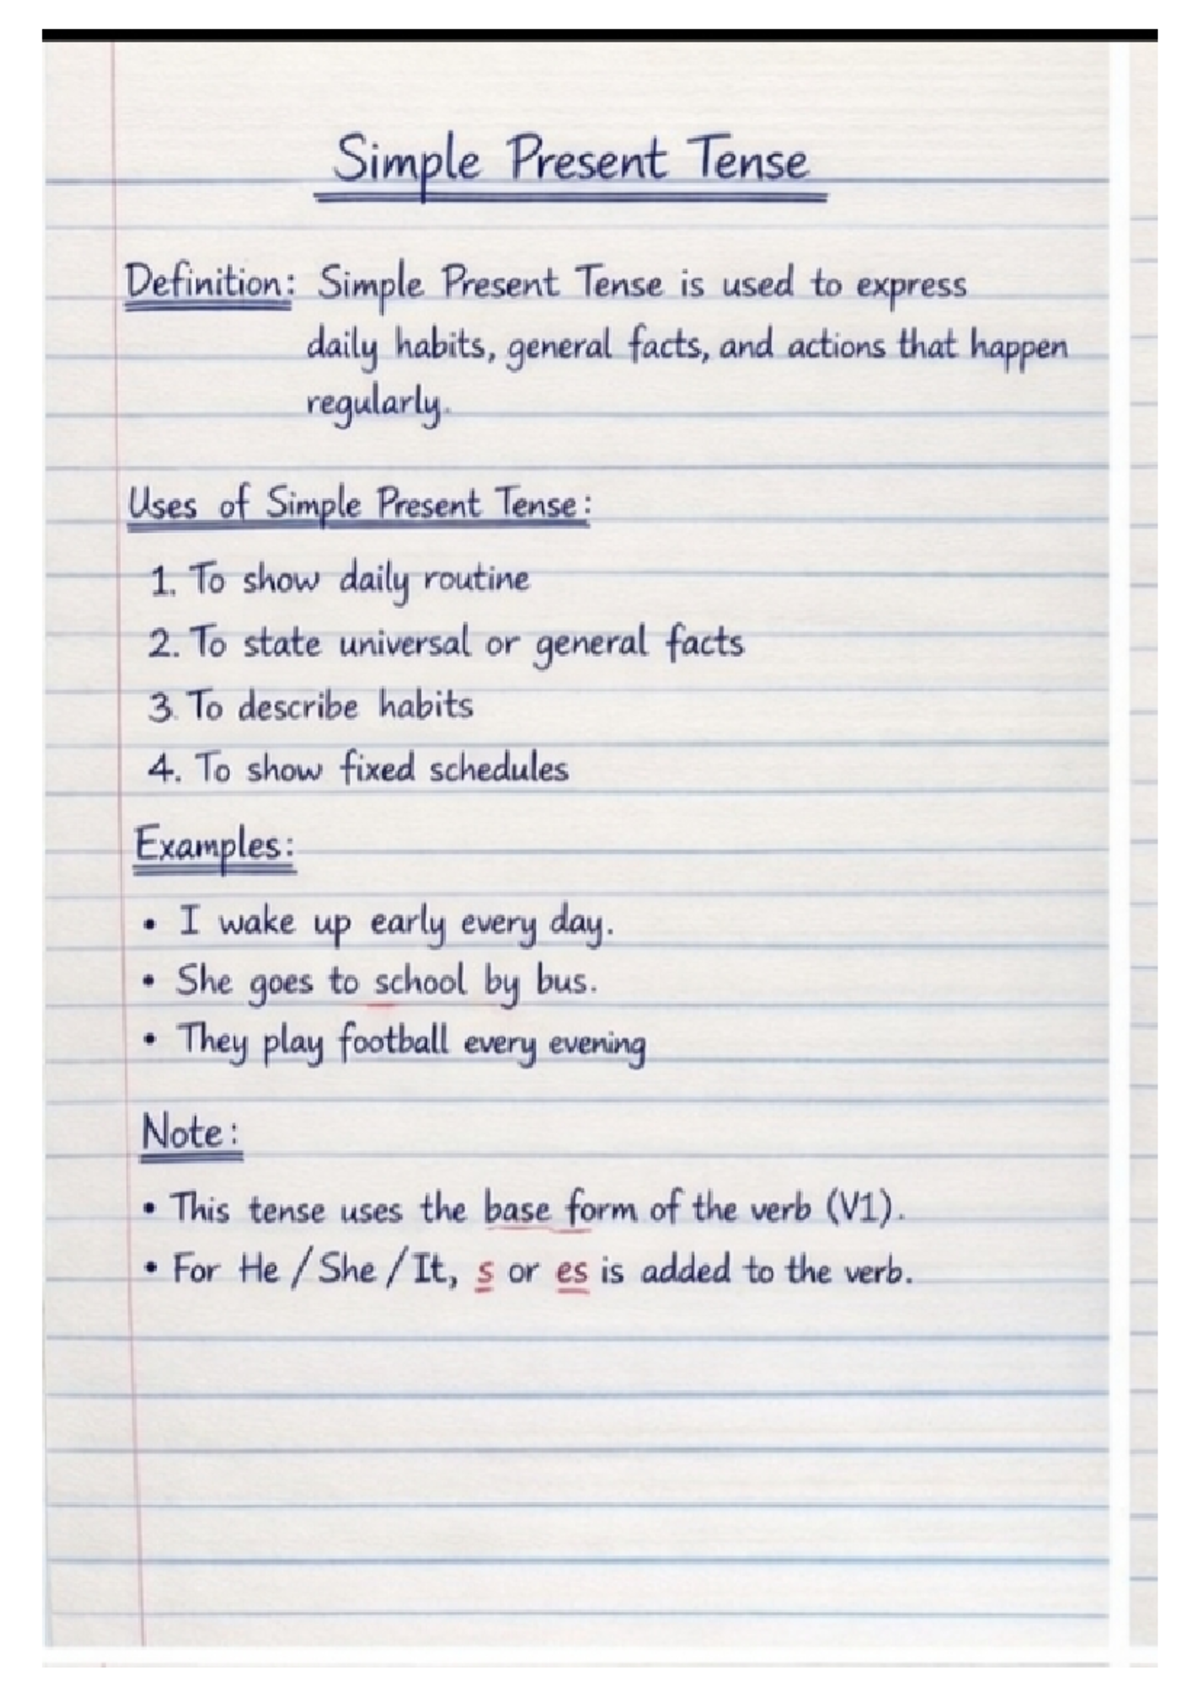 Simple Present Tense
Definition: Simple Present Tense is used to express
daily habits, general facts, and actions that happen
regularly.
Uses of Simple Present Tense:
1. To show daily routine
2. To state universal or general facts
3. To describe habits
4. To show fixed schedules
Examples:
• I wake up early every day.
• She goes to school by bus.
• They play football every evening
Note:
• This tense uses the base form of the verb (V1).
• For He / She / It, s or es is added to the verb.